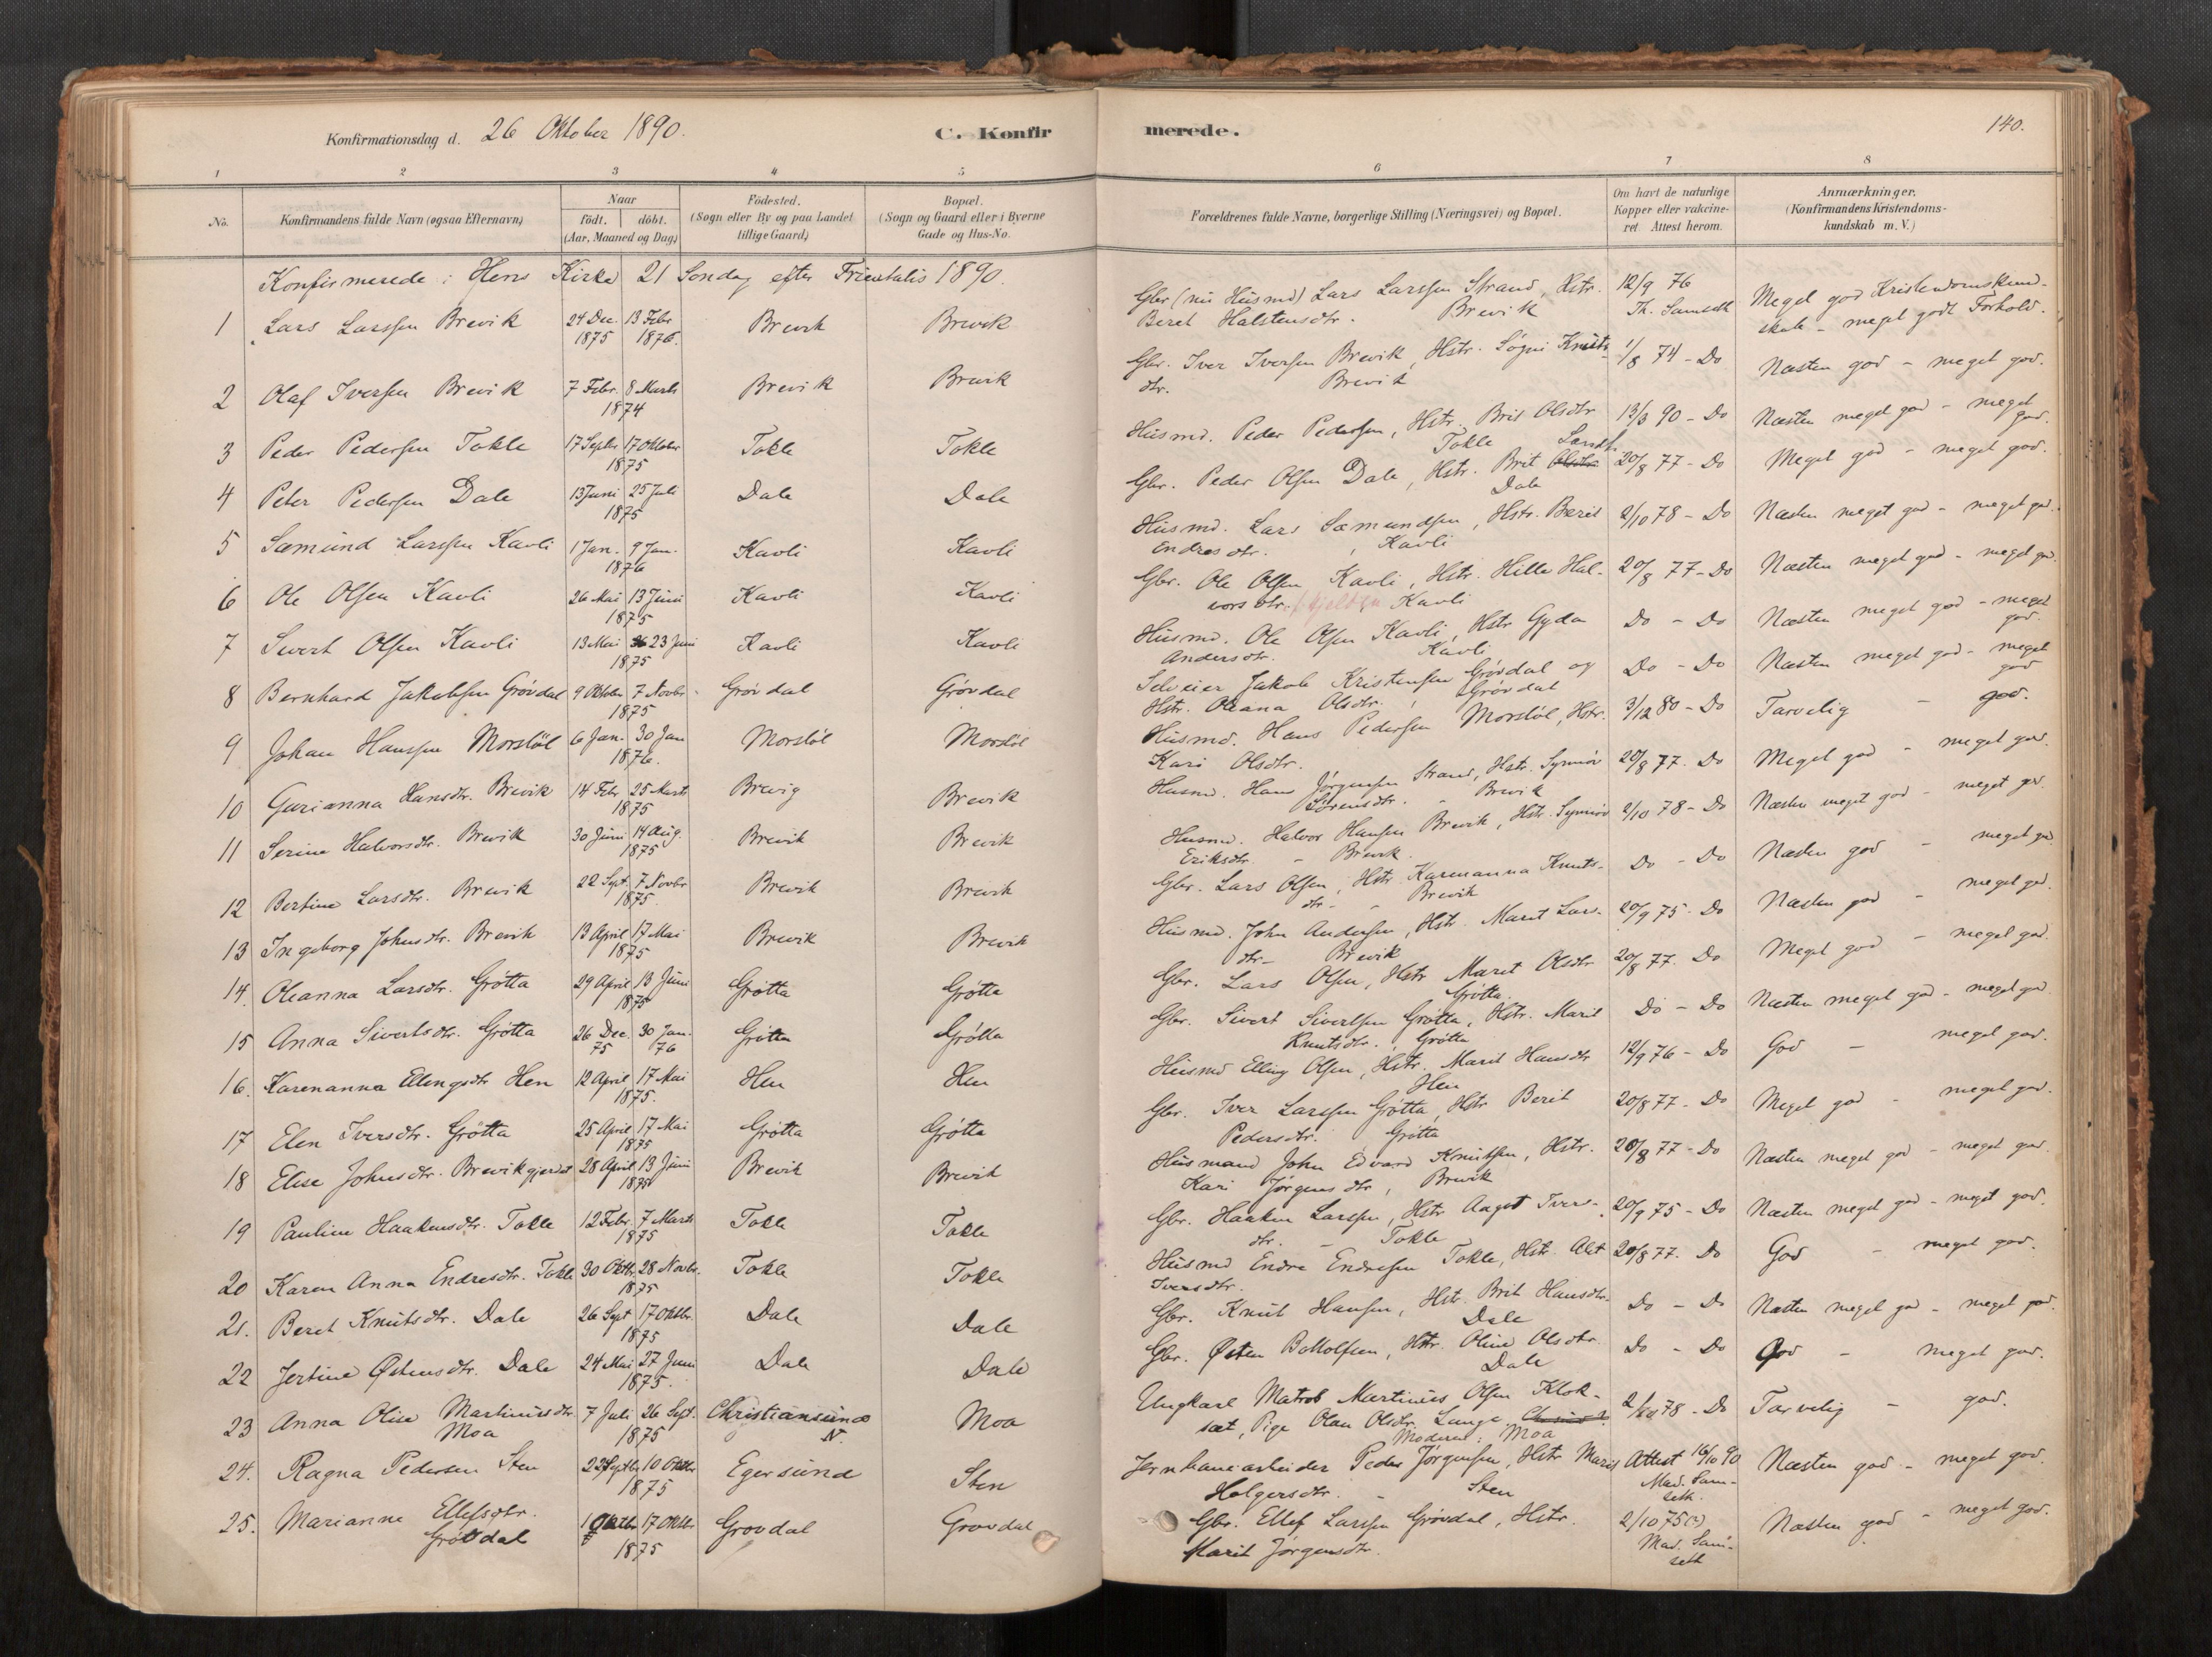 Konfirmationsdag d. 26 Oktober 1890. C. Konfirmerede. 140.
1 2 3 4 5 6 7 8
No. Konfirmandens fulde Navn (ogsaa Efternavn) Naar födt. döbt. (Aar, Maaned og Dag) Födested. (Sogn eller By og paa Landet tillige Gaard) Bopæl. (Sogn og Gaard eller i Byerne Gade og Hus-No. Forældrenes fulde Navne, borgerlige Stilling (Næringsvei) og Bopæl. Om havt de naturlige Kopper eller vakcineret Attest herom. Anmærkninger. (Konfirmandens Kristendomskundskab m. V.)
Konfirmerede i Hens Kirke 21 Søndag efter Trinitatis 1890.
1 Lars Larssen Brevik 24 Dec. 1875 13 Febr 1876. Brevik Brevik Gbr (nu Husmd) Lars Larssen Strand, Hstr. Beret Halstensdtr. Brevik 12/9 76 Th. Samseth Meget god Kristendomskundskab - meget godt Forhold.
2 Olaf Iversen Brevik 7 Febr. 8 Marts 1874 Brevik Brevik Gbr. Iver Iversen Brevik, Hstr. Sógni Knutsdtr. Brevik 1/8 74 - Do Næsten god - meget god.
3 Peder Pedersen Tokle 17 Septbr 17 Oktober 1875 Tokle Tokle Husmd. Peder Pedersen, Hstr. Brit Olsdtr Tokle 13/3 90 - Do Næsten meget god - meget god.
4 Peter Pedersen Dale 13 Juni 25 Juli 1875 Dale Dale Gbr. Peder Olsen Dale, Hstr. Brit Olsdtr Larsdtr Dale 20/8 77 - Do Meget god - meget god.
5 Sæmund Larssen Kavli 1 Jan. 9 Jan. 1876 Kavli Kavli Husmd. Lars Sæmundsen, Hstr. Berit Endresdtr. , Kavli 2/10 78 - Do Næsten meget god - meget god.
6 Ole Olsen Kavli 26 Mai 13 Juni 1875 Kavli Kavli Gbr. Ole Olsen Kavli, Hstr. Hille Halvorsdtr. Kavli 20/8 77 - Do Næsten meget god - meget god.
7 Sivert Olsen Kavli 13 Mai 23 Juni 1875 Kavli Kavli Husmd. Ole Olsen Kavli, Hstr Gyda Andersdtr. Kavli Do - Do Næsten meget god - meget god.
8 Bernhard Jakobsen Gróvdal 9 Oktober 7 Novbr 1875 Gróvdal Gróvdal Selveier Jakob Kristensen Gróvdal og Hstr. Oleana Olsdtr. , Gróvdal Do - Do Næsten meget god - meget god
9 Johan Hanssen Morstól 6 Jan. 30 Jan 1876. Morstól Morstól Husmd. Hans Pedersen Morstól, Hstr. Kari Olsdtr. 3/12 80 - Do Tarvelig - god.
10 Gurianna Hansdtr. Brevik 14 Febr 25 Marts 1875 Brevig Brevik Husmd. Hans Jørgensen Strand, Hstr. Synnóv Sórensdtr. - Brevik 20/8 77. Do Meget god - meget god.
11 Serine Halvorsdtr. Brevik 30 Juni 14 Aug. 1875 Brevik Brevik Husmd. Halvor Hansen Brevik, Hstr. Synnóv Eriksdtr. - Brevik. 2/10 78 - Do Næsten meget god - meget god.
12 Bertine Larsdtr. Brevik 22 Sept. 7 Novbr 1875. Brevik Brevik Gbr. Lars Olsen, Hstr. Karenanna Knutsdtr. - Brevik Do - Do Næsten god - meget god
13 Ingeborg Johnsdtr. Brevik 13 April 17 Mai 1875 Brevik Brevik Husmd. John Andersen, Hstr. Marit Larsdtr - Brevik 20/9 75 - Do Næsten god - meget god.
14. Oleanna Larsdtr. Grótta 29 April 13 Juni 1875 Grótta Grótta Gbr. Lars Olsen, Hstr Marit Olsdtr Grótta 20/8 77. Do Meget god - meget god.
15 Anna Sivertsdtr. Grótta 26 Dec. 75 30 Jan. 76 Grótta Grótta Gbr. Sivert Sivertsen Grótta, Hstr. Marit Knutsdtr. , Grótta Do - Do Næsten meget god - meget god.
16. Karenanna Ellingsdtr Hen 12 April 17 Mai 1875. Hen Hen Husmd Elling Olsen, Hstr. Marit Hansdtr Hen 12/9 76 - Do God - meget god.
17 Elen Iversdtr. Grótta 25 April 17 Mai 1875 Grótta Grótta Gbr. Iver Larssen Grótta, Hstr Berit Pedersdtr. Grótta 20/8 77 - Do Meget god - meget god.
18 Elise Johnsdtr. Brevikgjerdet 28 April 13 Juni 1875 Brevik Brevik Husmand John Edvard Knutsen, Hstr. Kari Jørgensdtr, Brevik 20/8 77 - Do Næsten meget god - meget god.
19 Pauline Haakensdtr. Tokle 12 Febr. 7 Marts 1875 Tokle Tokle Gbr. Haaken Larssen, Hstr Aagot Iversdtr. - Tokle 20/9 75 - Do Næsten meget god - meget god.
20 Karen Anna Endresdtr. Tokle 30 Oktbr. 28 Novbr. 1875 Tokle Tokle Husmd Endre Endresen Tokle, Hstr. Alet Iversdtr. 20/8 77. Do God - meget god.
21. Beret Knutsdtr. Dale 26 Sept 17 Oktbr. 1875 Dale Dale Gbr. Knut Hansen, Hstr. Brit Hansdtr. Dale Do - Do Næsten meget god - meget god.
22 Jertine Østensdtr. Dale 24 Mai 27 Juni 1875. Dale Dale Gbr. Østen Bottolfsen, Hstr. Oline Olsdtr. Dale Do - Do God - meget god.
23 Anna Olise Martinusdtr. Moa 7 Juli 26 Sept. 1875 Christiansund N. Moa Ungkarl Matros Martinus Olsen Kloksæt, Pige Olau Olsdtr. Lange. Moderen: Moa 2/10 78 - Do Tarvelig - god.
24. Ragna Pedersen Sten 22 Septbr 10 Oktbr 1875 Egersund Sten Jernbanearbeider Peder Jørgensen, Hstr Marit Holgersdtr. - Sten Attest 16/10 90 Mad. Samseth. Næsten god - meget god.
25. Marianne Ellefsdtr. Gróvdal 1 Oktbr 17 Oktbr 1875 Grovdal Grovdal Gbr. Ellef Larssen Gróvdal, Hstr. Marit Jørgensdtr. 2/10 75 (?) Mad. Samseth Næsten god - meget god.